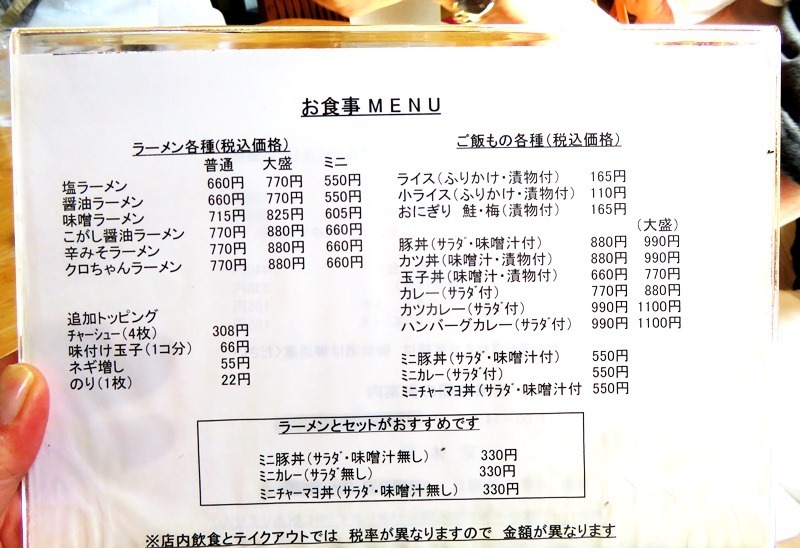 お食事MENU
ラーメン各種(税込価格)
普通 大盛 ミニ
塩ラーメン 660円 770円 550円
醤油ラーメン 660円 770円 550円
味噌ラーメン 715円 825円 605円
こがし醤油ラーメン 770円 880円 660円
辛みそラーメン 770円 880円 660円
クロちゃんラーメン 770円 880円 660円
追加トッピング
チャーシュー(4枚) 308円
味付け玉子(1コ分) 66円
ネギ増し 55円
のり(1枚) 22円
ご飯もの各種(税込価格)
ライス(ふりかけ・漬物付) 165円
小ライス(ふりかけ・漬物付) 110円
おにぎり 鮭・梅(漬物付) 165円
(大盛)
豚丼(サラダ・味噌汁付) 880円 990円
カツ丼(味噌汁・漬物付) 880円 990円
玉子丼(味噌汁・漬物付) 660円 770円
カレー(サラダ付) 770円 880円
カツカレー(サラダ付) 990円 1100円
ハンバーグカレー(サラダ付) 990円 1100円
ミニ豚丼(サラダ・味噌汁付) 550円
ミニカレー(サラダ付) 550円
ミニチャーマヨ丼(サラダ・味噌汁付 550円
ラーメンとセットがおすすめです
ミニ豚丼(サラダ・味噌汁無し) 330円
ミニカレー(サラダ無し) 330円
ミニチャーマヨ丼(サラダ・味噌汁無し) 330円
※店内飲食とテイクアウトでは 税率が異なりますので 金額が異なります